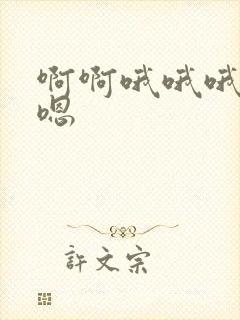 啊啊哦哦哦
嗯
許文宗